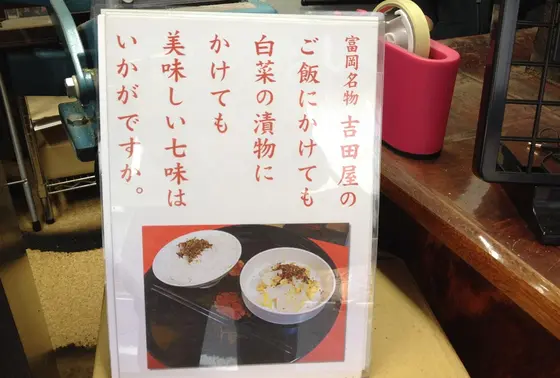 富岡名物 吉田屋の
ご飯にかけても
白菜の漬物に
かけても
美味しい七味は
いかがですか。